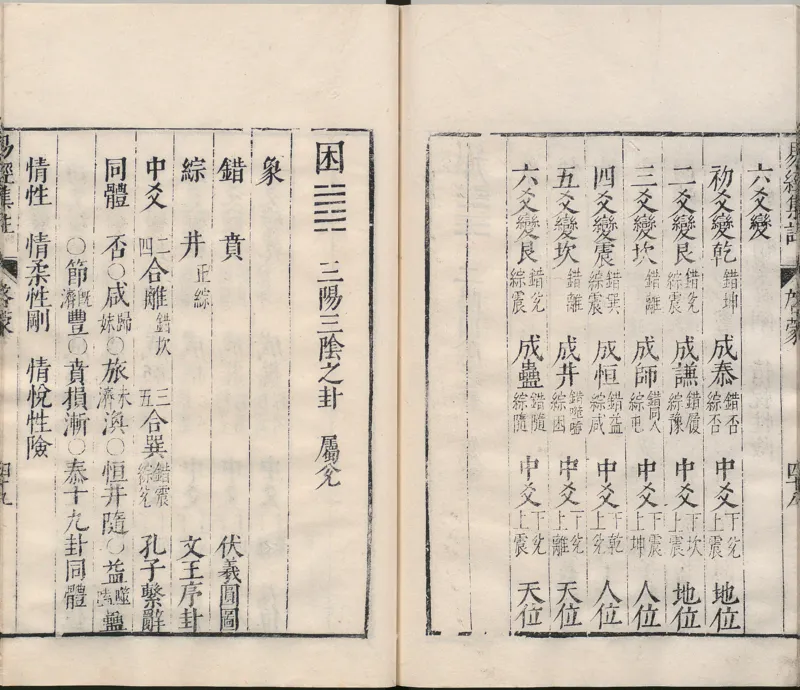 六爻變
初爻變乾 錯坤 成泰 錯否綜否 中爻 下兌上震 地位
二爻變艮 錯兌綜震 成謙 錯履綜豫 中爻 下坎上震 地位
三爻變坎 錯離 成師 錯同人綜比 中爻 下震上坤 人位
四爻變震 錯巽綜艮 成恒 錯益綜咸 中爻 下乾上兌 人位
五爻變坎 錯離 成井 錯噬嗑綜困 中爻 下兌上離 天位
六爻變艮 錯兌綜震 成蠱 錯隨綜隨 中爻 下兌上震 天位
易經集註 啓蒙 四十八
困 三陽三陰之卦 屬兌
象
錯 賁 伏羲圓圖
綜 井 正綜 文王序卦
中爻 二四合離 錯坎 三五合巽 錯震綜兌 孔子繫辭
同體 否〇咸歸妹〇旅未濟渙〇恒井隨〇益噬嗑蠱
〇節既濟豐〇賁損漸〇泰十九卦同體
情性 情柔性剛 情悅性險
易經集註 啓蒙 四十九